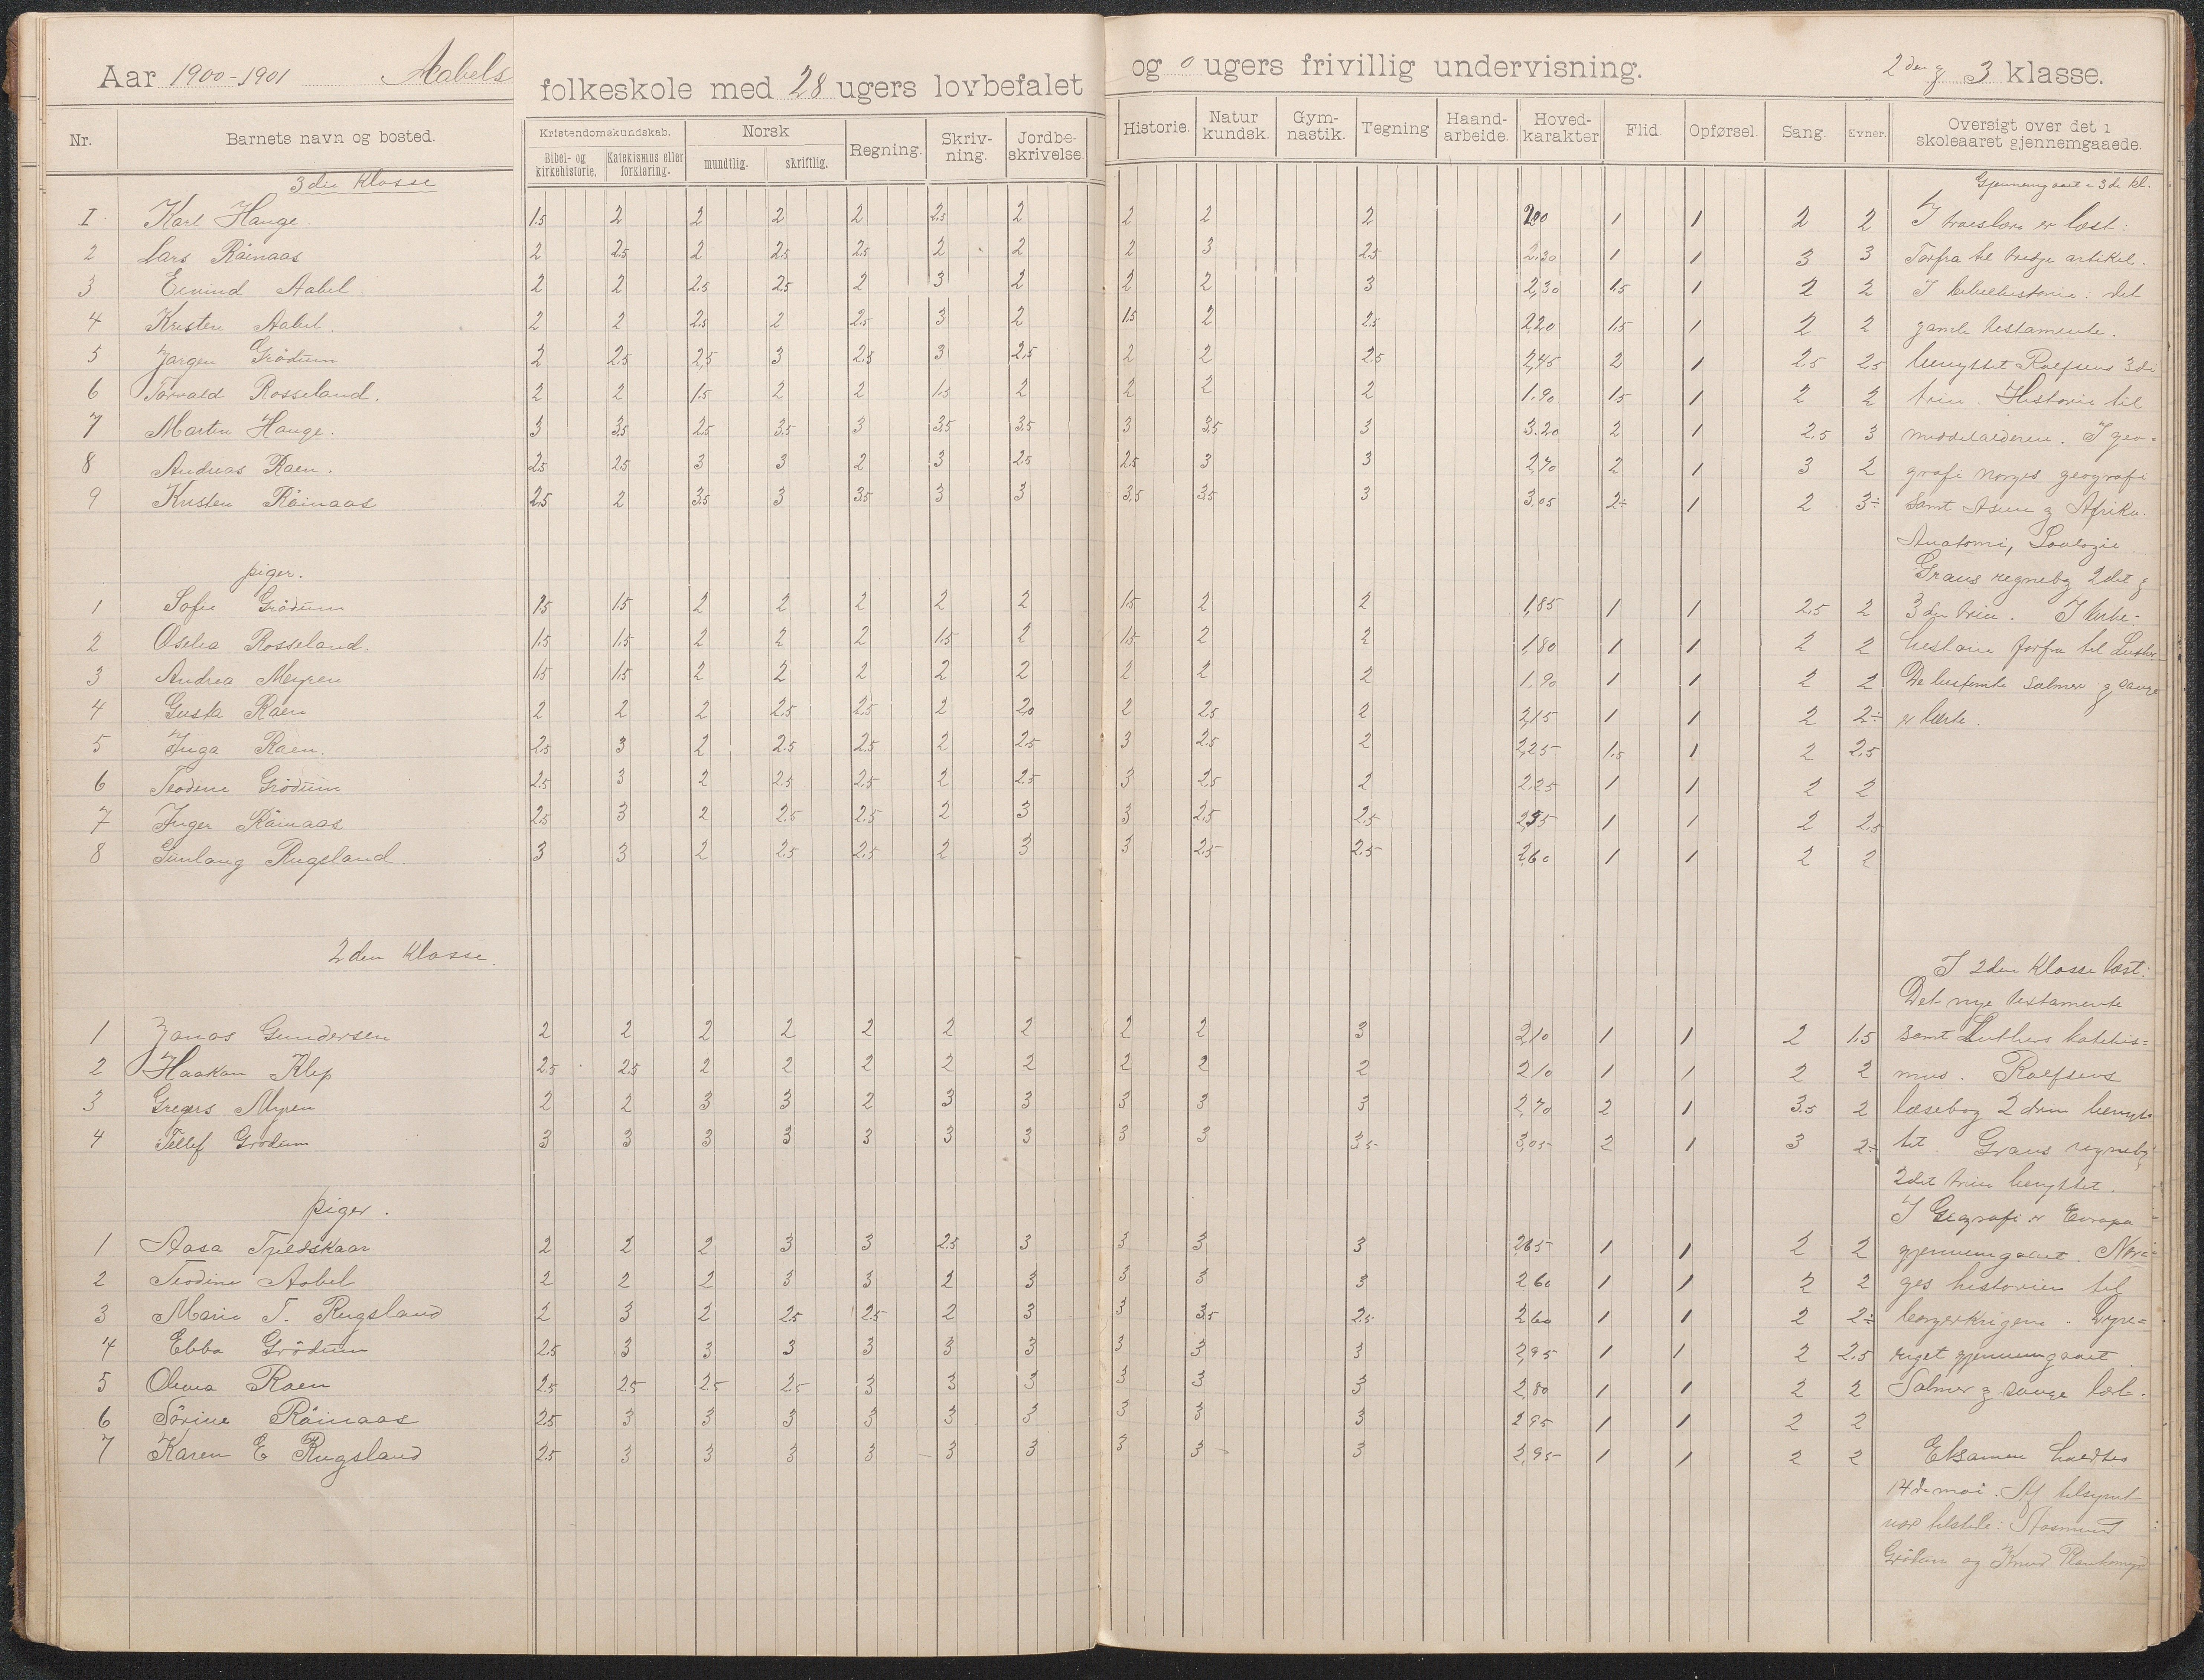 Aar 1900-1901 Aabels folkeskole med 28 ugers lovbefalet og 0 ugers frivillig undervisning. 2den og 3 klasse.
Nr. Barnets navn og bosted. Kristendomskundskab. Bibel- og kirkehistorie. Katekismus eller forklaring. Norsk mundtlig. skriftlig. Regning. Skrivning. Jordbeskrivelse. Historie. Naturkundsk. Gymnastik. Tegning Haandarbeide. Hovedkarakter Flid. Opførsel. Sang. Evner. Oversigt over det i skoleaaret gjennemgaaede.
3die Klasse
I Karl Hauge. 1.5 2 2 2 2 2.5 2 2 2 2 2,00 1 1 2 2
2 Lars Råinaas 2 2.5 2 2.5 2.5 2 2 2 3 2.5 2.30 1 1 3 3
3 Eivind Aabel 2 2 2.5 2.5 2 3 2 2 2 3 2,30 1.5 1 2 2
4 Kristen Aabel. 2 2 2.5 2 2.5 3 2 1.5 2 2.5 2,20 1.5 1 2 2
5 Jørgen Grödum 2 2.5 2,5 3 2.5 3 2.5 2 2 2.5 2,45 2 1 2.5 2.5
6 Torvald Rosseland. 2 2 1.5 2 2 1.5 2 2 2 2 1.90 1.5 1 2 2
7 Martin Hauge. 3 3.5 2.5 3.5 3 3.5 3.5 3 3.5 3 3.20 2 1 2.5 3
8 Andreas Raen. 2.5 2.5 3 3 2 3 2.5 2.5 3 3 2,70 2 1 3 2
9 Kristen Råinaas 2.5 2 3.5 3 3.5 3 3 3,5 3.5 3 3.05 2÷ 1 2 3÷
piger.
1 Sofie Grödum 1.5 1.5 2 2 2 2 2 1.5 2 2 1,85 1 1 2.5 2
2 Oselia Rosseland. 1.5 1.5 2 2 2 1.5 2 1.5 2 2 1,80 1 1 2 2
3 Andrea Myren 1.5 1.5 2 2 2 2 2 2 2 2 1,90 1 1 2 2
4 Gusta Raen 2 2 2 2.5 2.5 2 2.0 2 2.5 2 2,15 1 1 2 2÷
5 Inga Raen. 2.5 3 2 2.5 2.5 2 2.5 3 2.5 2 2,25 1.5 1 2 2.5
6 Teodine Grödum 2.5 3 2 2.5 2.5 2 2.5 3 2.5 2 2.25 1 1 2 2
7 Inger Råinaas 2.5 3 2 2.5 2.5 2 3 3 2.5 2.5 2,55 1 1 2 2.5
8 Gunlaug Rugsland. 3 3 2 2.5 2.5 2 3 3 2.5 2.5 2,60 1 1 2 2
2den Klasse.
1 Jonas Gundersen 2 2 2 2 2 2 2 2 2 3 2,10 1 1 2 1.5
2 Haakon Klep 2.5 2.5 2 2 2 2 2 2 2 2 2,10 1 1 2 2
3 Gregers Myren 2 2 3 3 2 3 3 3 3 3 2,70 2 1 3.5 2
4 Tellef Grödum 3 3 3 3 3 3 3 3 3 3.5 3,05 2 1 3 2÷
piger.
1 Aasa Tjeldskaar 2 2 2 3 3 2.5 3 3 3 3 2,65 1 1 2 2
2 Teodine Aabel 2 2 2 3 3 2 3 3 3 3 2,60 1 1 2 2
3 Marie T. Rugsland 2 3 2 2.5 2.5 2 3 3 3.5 2.5 2,60 1 1 2 2÷
4 Ebba Grödum 2.5 3 3 3 3 3 3 3 3 3 2,95 1 1 2 2.5
5 Olava Raen 2.5 2.5 2.5 2.5 3 3 3 3 3 3 2,80 1 1 2 2
6 Sörine Råinaas 2.5 3 3 3 3 3 3 3 3 3 2,95 1 1 2 2
7 Karen E Rugsland 2.5 3 3 3 3 3 3 3 3 3 2,95 1 1 2 2
Gjennemgaaet i 3die kl.
I troeslære er læst:
Forfra til tredje artikel.
I bibelhistorie: det
gamle testamente.
benyttet Rolfsens 3die
trin. Historie til
middelalderen. I geo-
grafi Norges geografi
samt Asien og Afrika.
Anatomi, Zoologie
Graus regnebog 2det og
3die trin. I kirke-
historie forfra til Luther
De bestemte salmer og sange
er lærte.
I 2den Klasse læst:
Det nye testamente
samt Luthers katekis=
mus. Rolfsens
læsebog 2 trin benyt=
tet. Graus regnebog
2det trin benyttet.
I Geografi er Europa
gjennemgaaet. Nor=
ges historien til
borgerkrigene. Dyre=
riget gjennemgaaet
Salmer og sange lært.
Eksamen holdtes
14de mai. Af tilsynet
var tilstede: Aasmund
Grödum og Knud